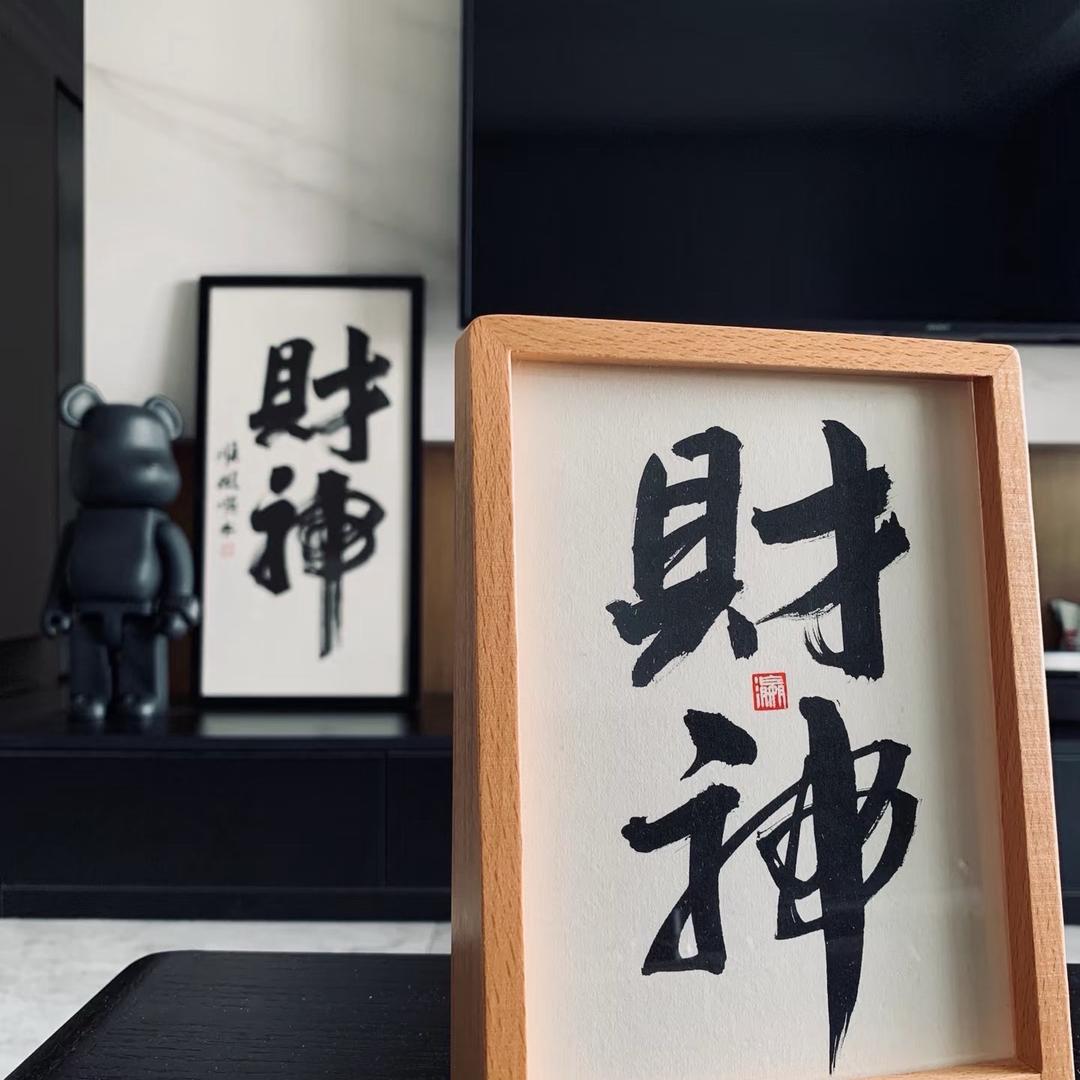 財神
瀛
財神